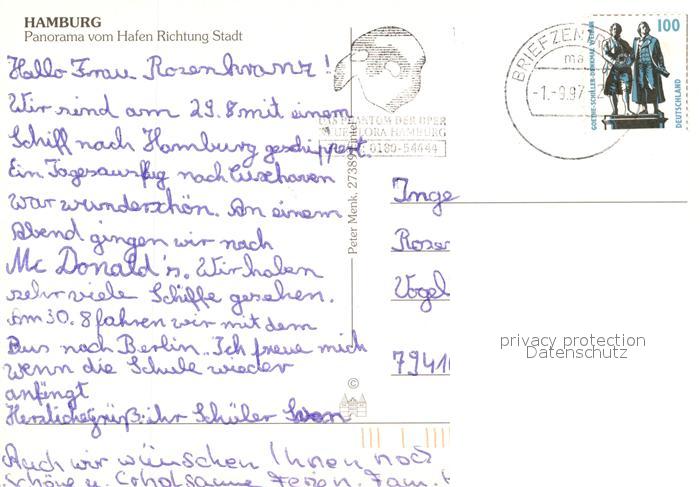 HAMBURG
Panorama vom Hafen Richtung Stadt
Hallo Frau Rosenkranz!
Wir sind am 29.8 mit einem
Schiff nach Hamburg geschippert.
Ein Tagesausflug nach Cuxhaven
war wunderschön. An einem
Abend gingen wir nach
Mc Donald's. Wir haben
sehr viele Schiffe gesehen.
Am 30.8 fahren wir mit dem
Bus nach Berlin. Ich freue mich
wenn die Schule wieder
anfängt
Herzliche Grüße ihr Schüler Sven
Auch wir wünschen Ihnen noch
schöne u. erholsame Ferien. Fam.
Peter Menk, 27389
©
DAS PHANTOM DER OPER
NEUE FLORA HAMBURG
0180-54444
BRIEFZEN
ma
-1.-9.97
100
GOETHE-SCHILLER-DENKMAL WEIMAR
DEUTSCHLAND
Inge
Rosen
Vogel
7941
privacy protection
Datenschutz